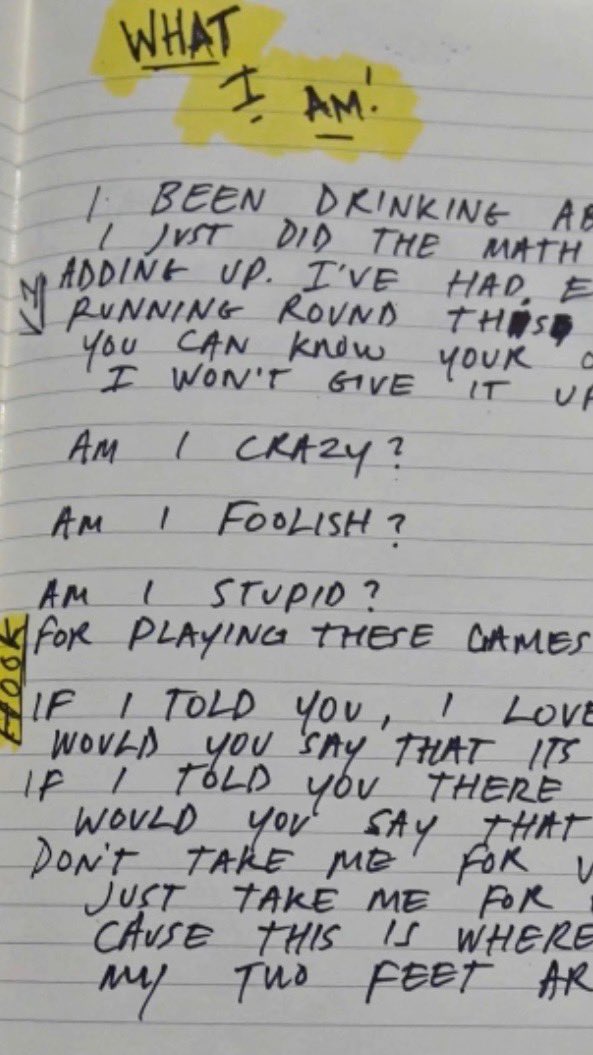 WHAT
I AM!
I BEEN DRINKING AB
I JUST DID THE MATH
ADDING UP. I'VE HAD E
V1
RUNNING ROUND THIS
YOU CAN KNOW YOUR
I WON'T GIVE IT UP
AM I CRAZY?
AM I FOOLISH?
AM I STUPID?
FOR PLAYING THESE GAMES
HOOK
IF I TOLD YOU, I LOVE
WOULD YOU SAY THAT ITS
IF I TOLD YOU THERE
WOULD YOU SAY THAT
DON'T TAKE ME FOR
JUST TAKE ME FOR
CAUSE THIS IS WHERE
MY TWO FEET AR